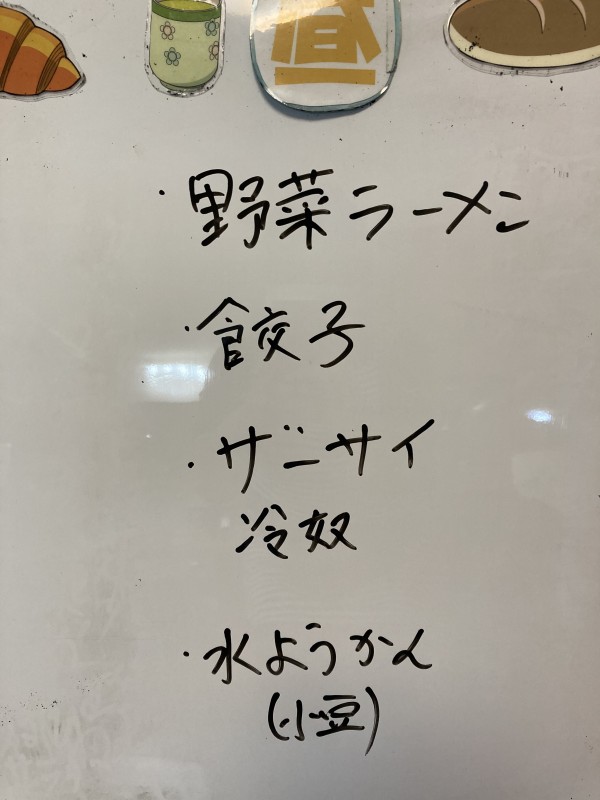 昼
・野菜ラーメン
・餃子
・ザーサイ
冷奴
・水ようかん
(小豆)